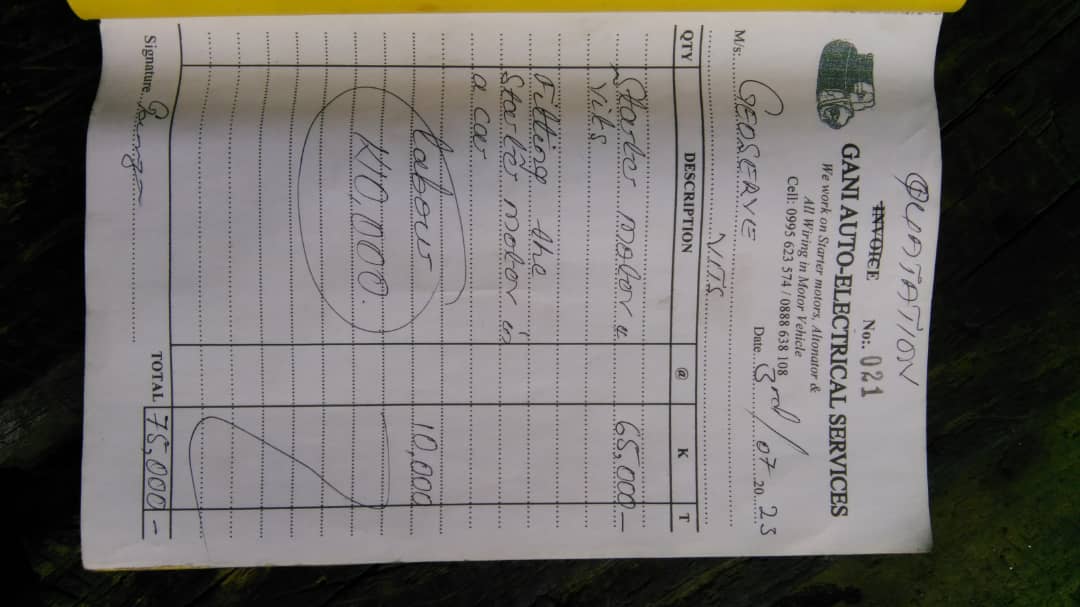 QUATATION
INVOICE No:. 021
GANI AUTO-ELECTRICAL SERVICES
We work on Starter motors, Altonator &
All Wiring in Motor Vehicle
Cell: 0995 623 574 / 0888 638 108
Date 3rd/07 20 23
M/s: GEOSERVE
VITS
QTY DESCRIPTION @ K T
Starter motor 65,000 -
vits
Fitting the
Starter motor in
a car
labour 10,000
K10,000.
TOTAL 75,000 -
Signature